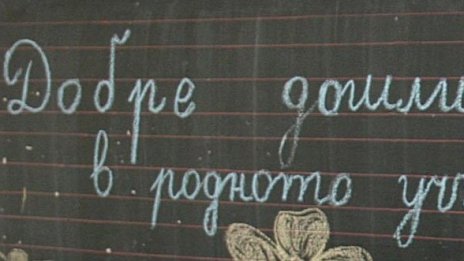 Добре дошли
в родното уч